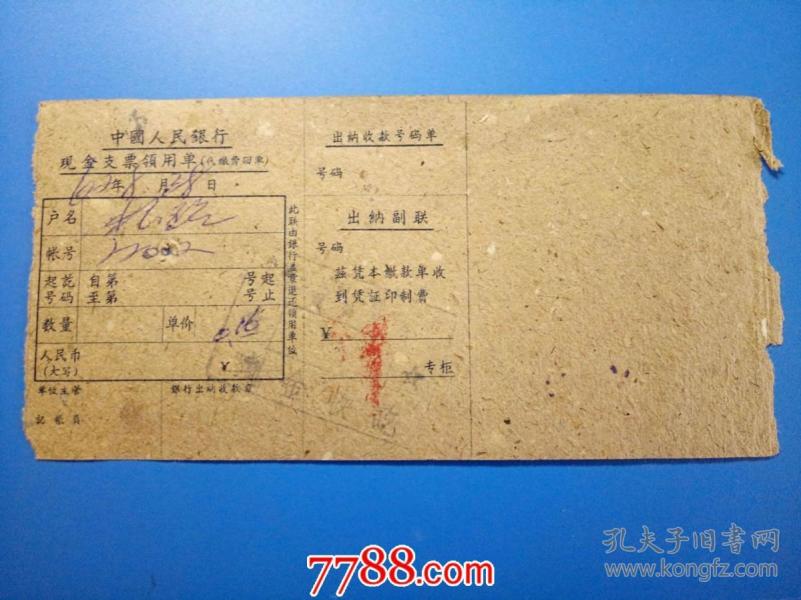 中國人民銀行
现金支票領用单(代繳費回单)
62年8月28日
户名
帐号
起訖 自第 号起
号码 至第 号止
数量 单价 0.16
人民币
(大写) ¥
单位主管 銀行出納收款章
記帳員
此联由銀行盖章退还領用单位
出納收款号码单
号码
出納副联
号码
茲凭本繳款单收
到凭証印制費
¥
专柜
現金收訖
7788.com
孔夫子旧书网
www.kongfz.com